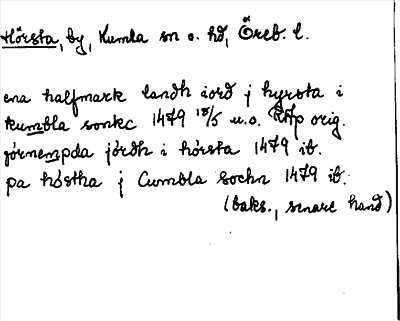 Hörsta, by, Kumla sn o. hd, Öreb. l.
ena halfmark landh iord j hyrsta i
kumbla sonkc 1479 18/5 u.o. RAp orig.
förnempda jördh i hörsta 1479 ib.
pa hóstha j Cumbla sochn 1479 ib.
(baks., senare hand)